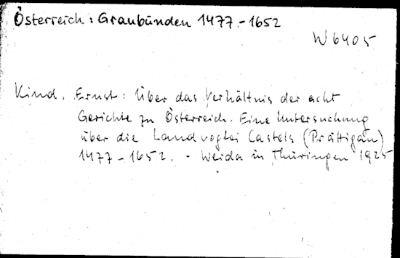 Österreich: Graubünden 1477-1652
W6405
Kind, Ernst: Über das Verhältnis der acht
Gerichte zu Österreich. Eine Untersuchung
über die Landvogtei Castels (Prättigau)
1477-1652. - Weida in Thüringen 1925